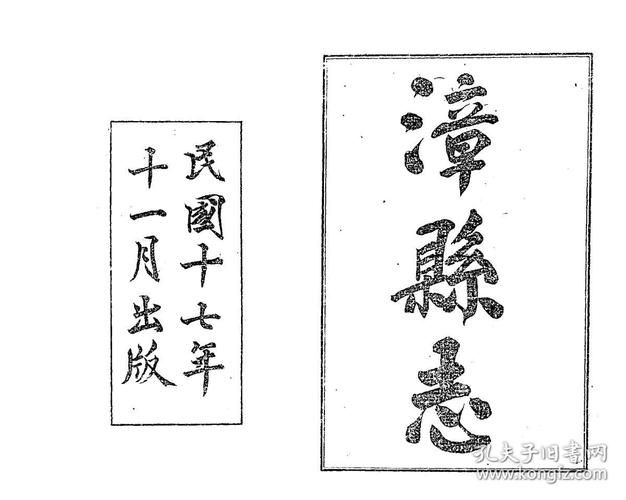 漳縣志
民國十七年
十一月出版
孔夫子旧书网
www.kongfz.com